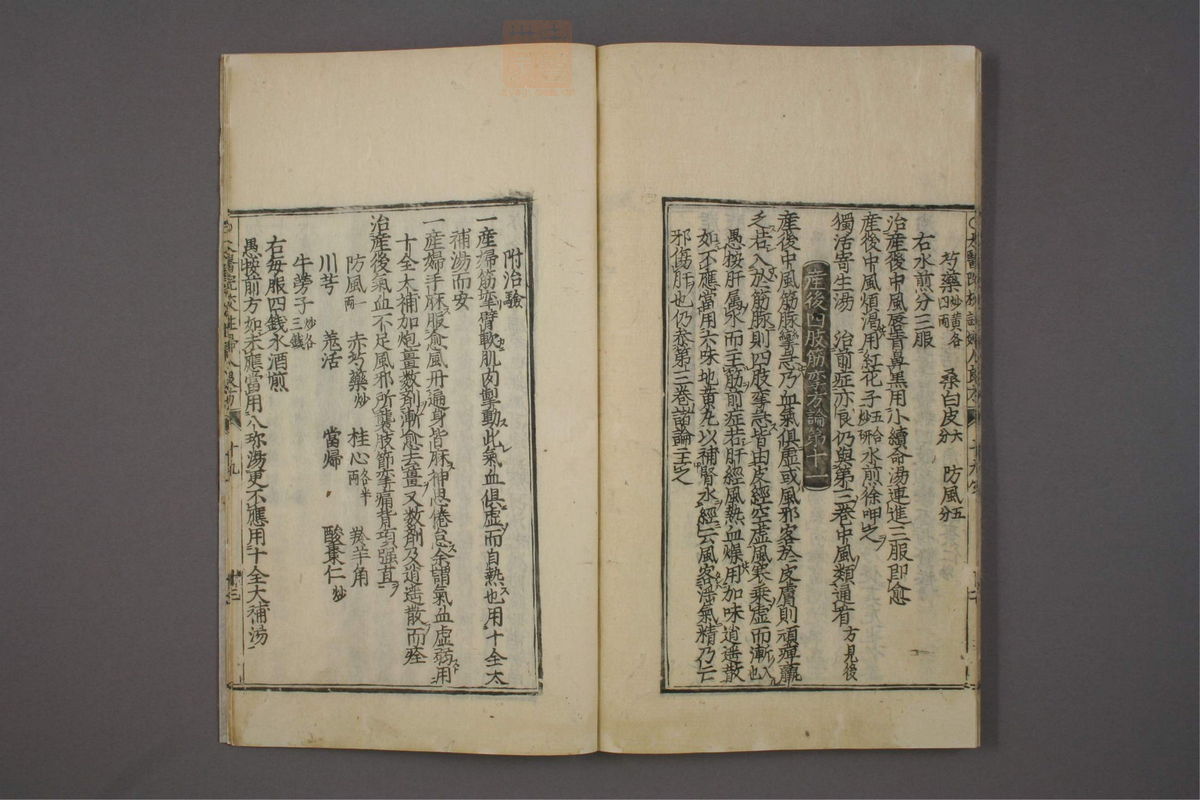 芍藥炒黃各四兩 桑白皮六分 防風五分
右水煎分三服
治産後中風唇青鼻黒用小續命湯連進三服即愈
産後中風煩渇用紅花子五合炒研水煎徐呷之
獨活寄生湯 治前症亦良仍與第三巻中風類通看方見後
産後四肢筋攣方論第十一
産後中風筋脉攣急乃血氣俱虚或風邪客於皮膚則頑痺羸
乏若入於筋脉則四肢攣急皆由皮經空虚風寒乘虚而漸入也
愚按肝属木而主筋前症若肝經風熱血燥用加味逍遥散
如不應當用六味地黄丸以補腎水經云風客滛氣精乃亡
邪傷肝也仍叅第三巻諸論主之
附治驗
一産婦筋攣臂軟肌肉掣動此氣血俱虚而自熱也用十全大
補湯而安
一産婦手麻服愈風丹遍身皆麻神思倦怠余謂氣血虚弱用
十全大補加炮薑數剤漸愈去薑又數剤及逍遥散而痊
治産後氣血不足風邪所襲肢節攣痛背項强直
防風一兩 赤芍藥炒 桂心各半兩 羚羊角
川芎 羗活 當歸 酸棗仁炒
牛蒡子炒各三錢
右每服四錢水酒煎
愚按前方如未應當用八珍湯更不應用十全大補湯